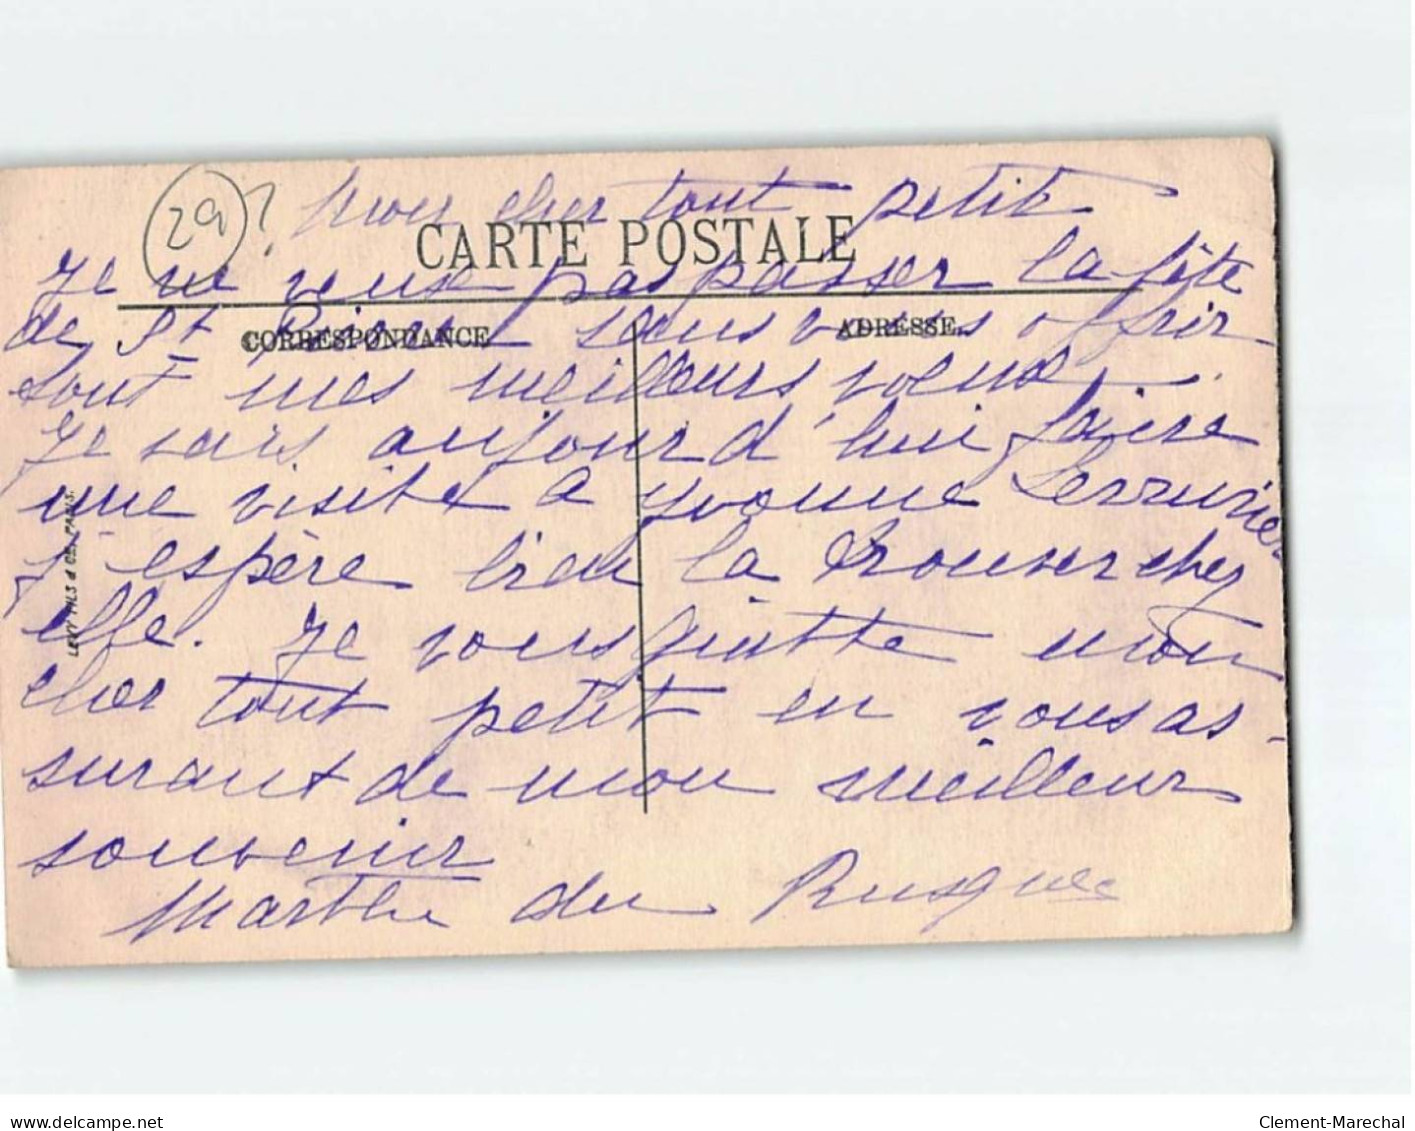 29 ?
Mon cher tout petit
CARTE POSTALE
Je ne veux pas passer la fête
de St Pierre sans vous offrir
CORRESPONDANCE
ADRESSE.
tout mes meilleurs voeux.
Je vais aujourd'hui faire
une visite à Yvonne
j'espère bien la trouver chez
elle. Je vous quitte mon
cher tout petit en vous as-
surant de mon meilleur
souvenir
Marthe du
LEVY FILS & CIE, PARIS.
delcampe.net
Clement-Marechal